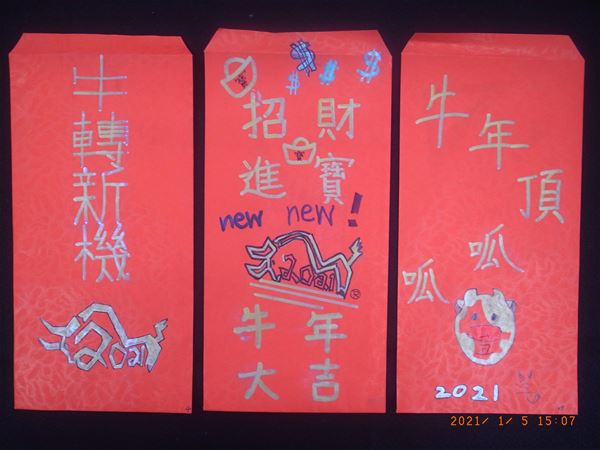 牛轉新機
2021
$ $ $ $
招財
進寶
new new!
2021
牛年
大吉
牛年頂
呱呱
吉
2021
2021/ 1/ 5 15:07